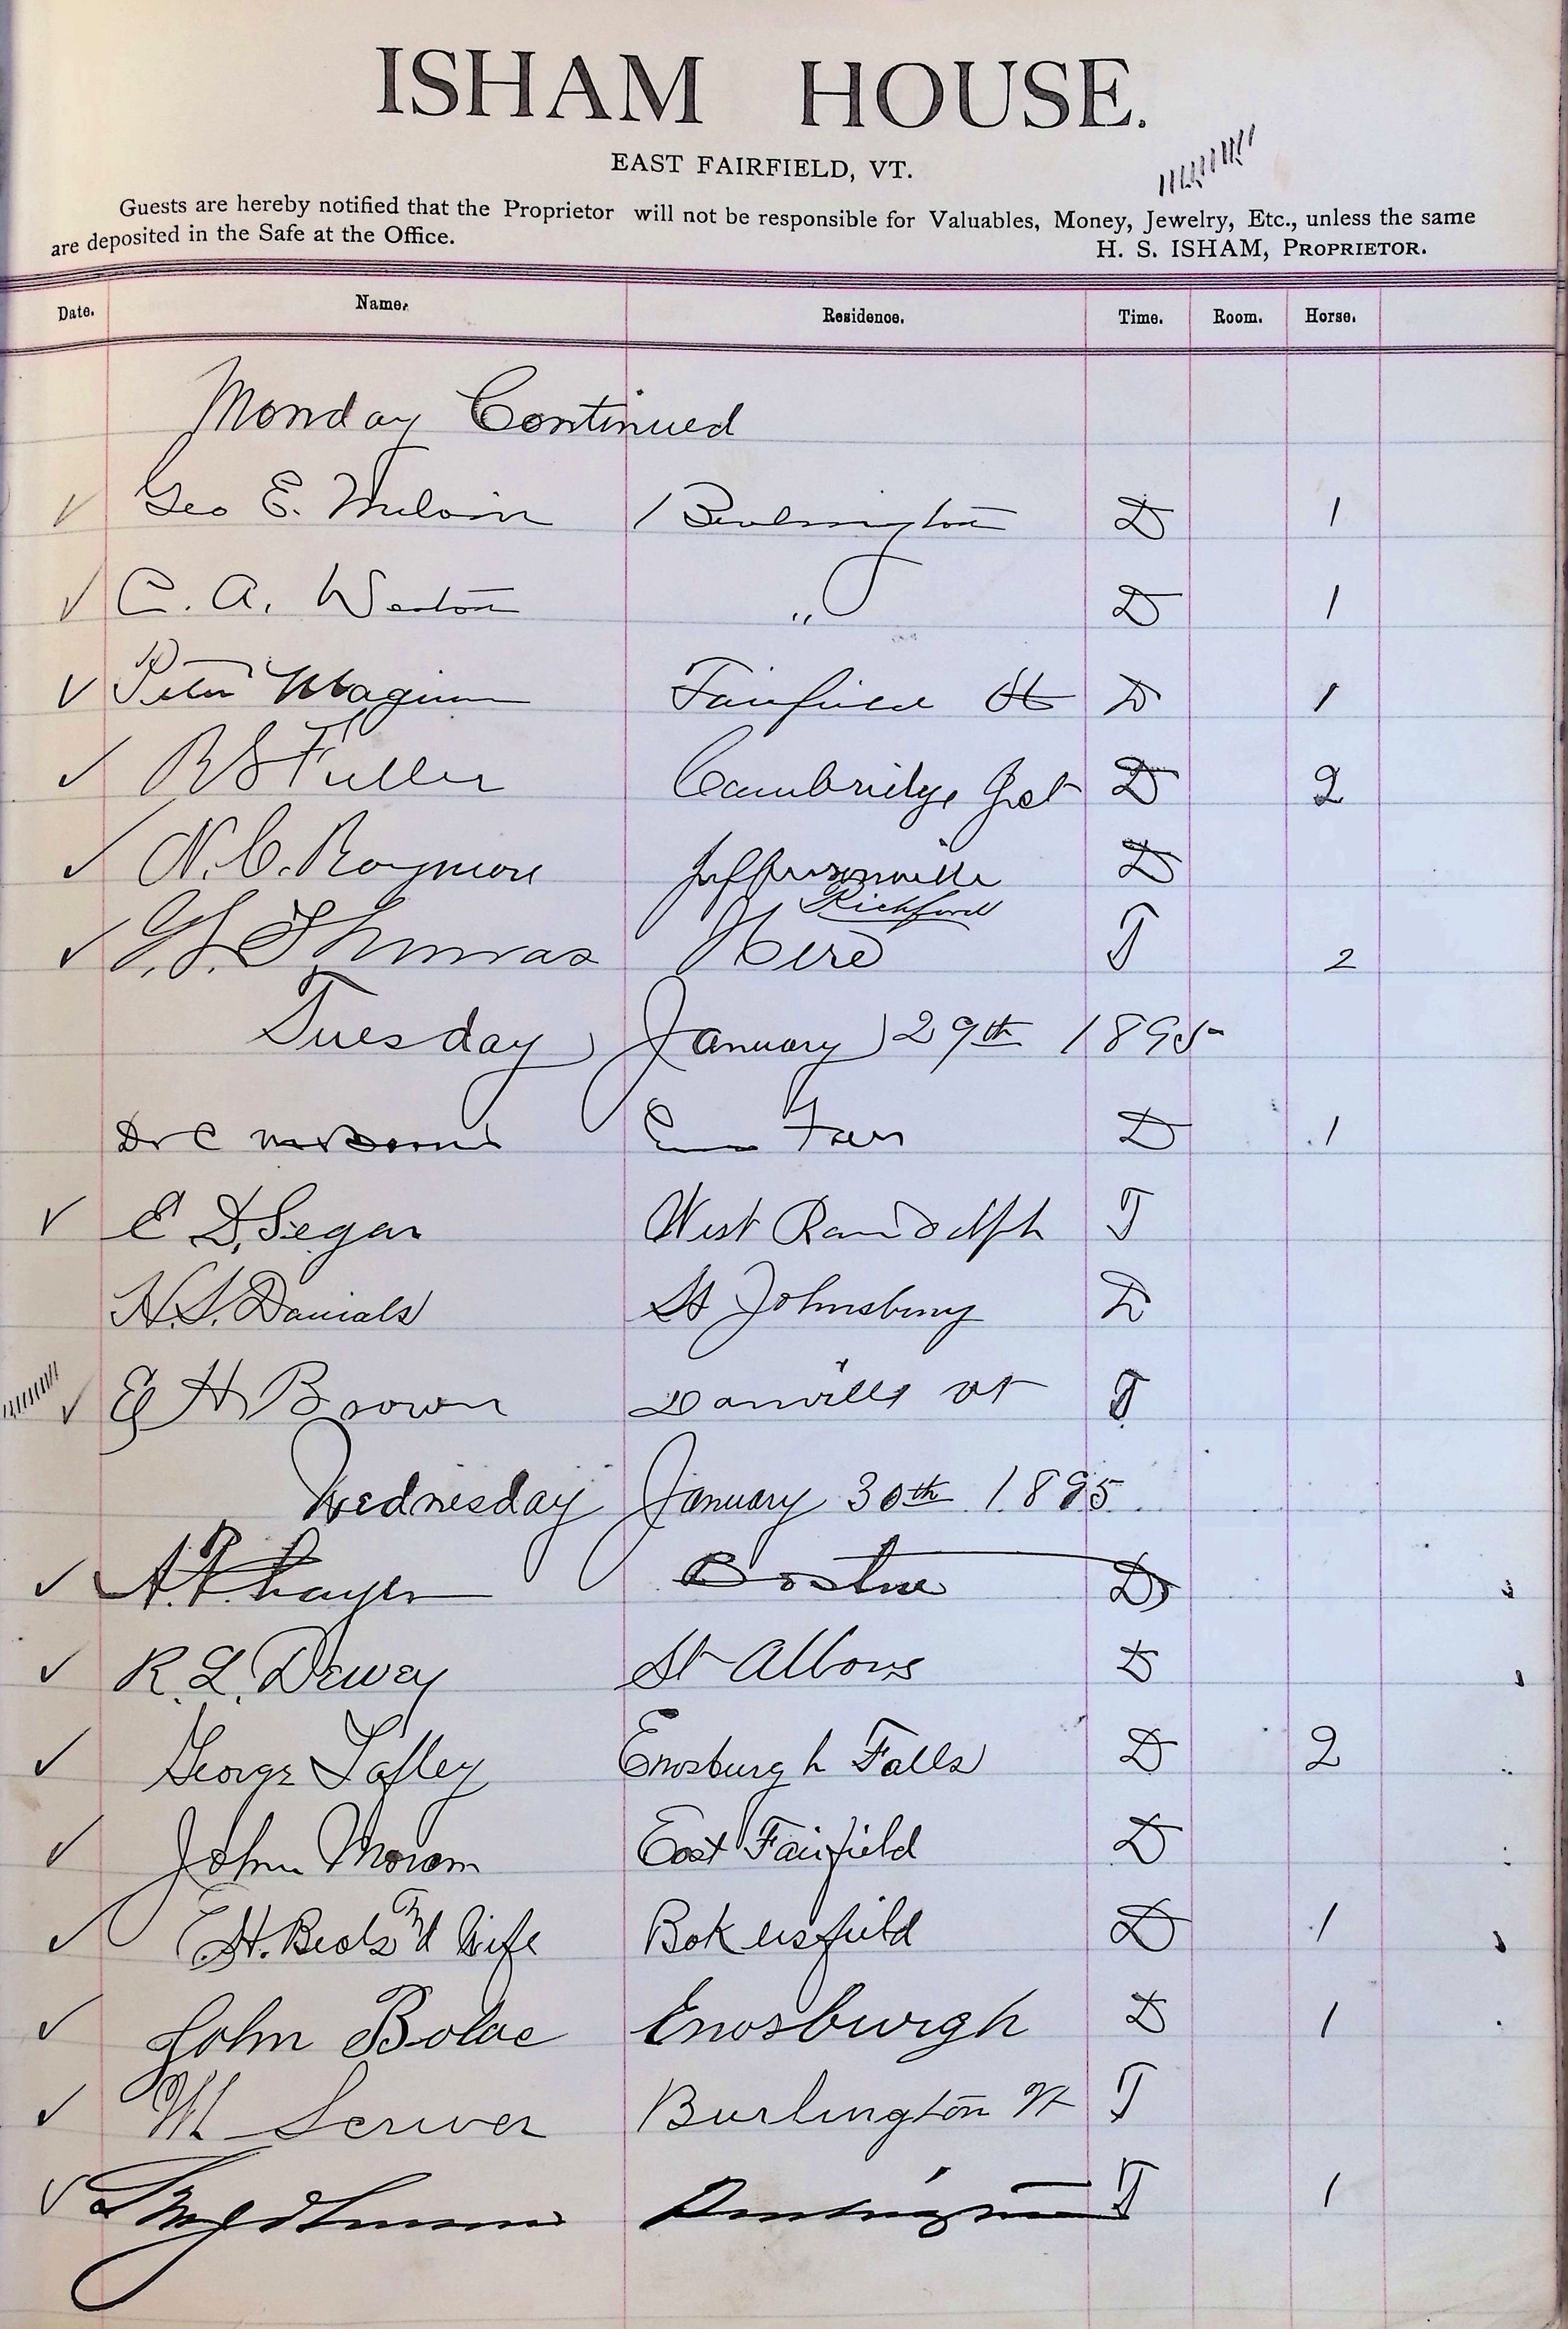 ISHAM HOUSE.
EAST FAIRFIELD, VT.
Guests are hereby notified that the Proprietor will not be responsible for Valuables, Money, Jewelry, Etc., unless the same
are deposited in the Safe at the Office.
H. S. ISHAM, PROPRIETOR.
Date. Name. Residence. Time. Room. Horse.
Monday Continued
Geo E. Burlington D 1
C. A. Weston " D 1
Peter Fairfield D 1
R S Fuller Cambridge Jct D 2
N. C. Raymore Jeffersonville D
Richford
Thomas Here T 2
Tuesday January 29th 1895
Dr C D 1
E D. Segar West Randolph T
H. S. Danials St Johnsbury D
E H Brown Danville Vt T
Wednesday January 30th 1895
A. P. Thayer Boston D
R. L. Dewey St Albans D
George Lafley Enosburgh Falls D 2
John Moram East Fairfield D
E. H. Beals And Wife Bakersfield D 1
John Bolac Enosburgh D 1
Scriver Burlington Vt T
T 1